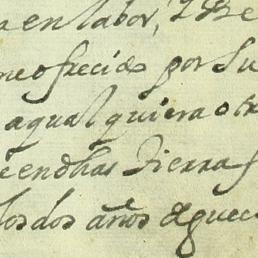 en labor, y se
me ofrecido por su
aqualquiera otr
en dhas tierras
los dos años